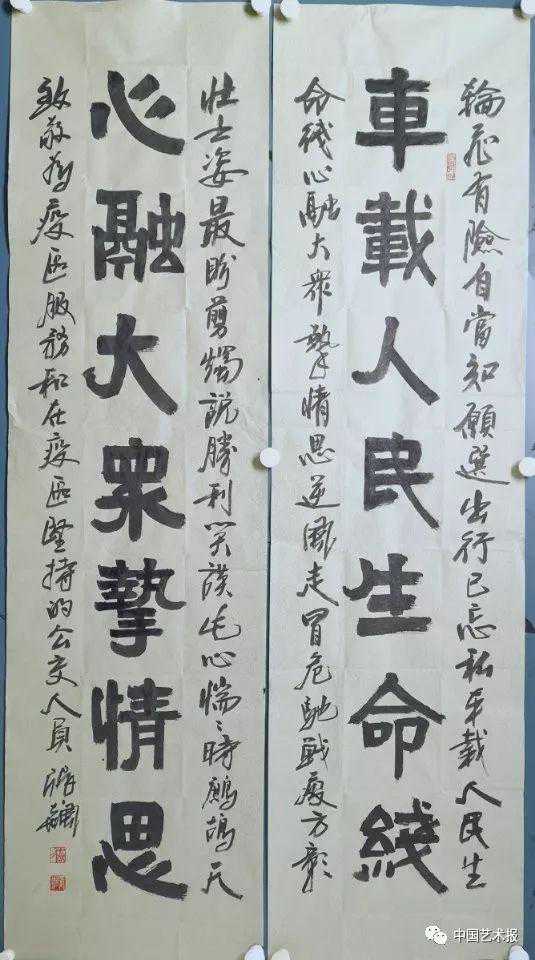 輪飛有險自當知願選出行已忘私车載人民生
車載人民生命綫
命綫心融大衆摯情思逆風走冒危馳戰疫方彰
壮士姿最盼剪燭說勝利笑談心惴〻時鷓鴣天
心融大衆摯情思
致敬为疫区服務和在疫区堅持的公交人員
中国艺术报